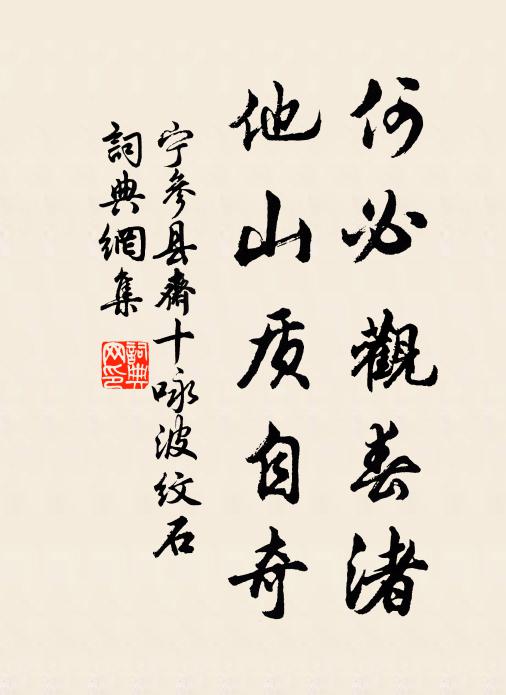 何必觀春渚
他山质自奇
宁參县齋十咏波纹石
詞典網集
詞典网印